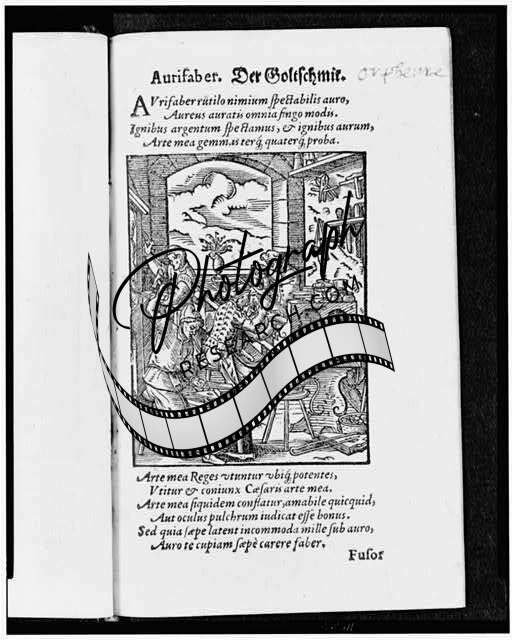 Aurifaber. Der Goltschmit.
AVrifaber rutilo nimium spectabilis auro,
Aureus auratis omnia fingo modis.
Ignibus argentum spectamus, & ignibus aurum,
Arte mea gemmas terq́; quaterq́; proba.
Photograph
RESEARCH.COM
Arte mea Reges vtuntur vbiq́; potentes,
Vtitur & coniunx Cæsaris arte mea.
Arte mea siquidem conflatur, amabile quicquid,
Aut oculus pulchrum iudicat esse bonus.
Sed quia sæpe latent incommoda mille sub auro,
Auro te cupiam sæpè carere faber.
Fusor